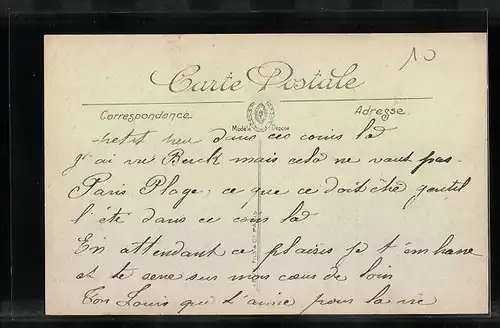 10
Carte Postale
Correspondance
Adresse
Modèle Déposé
petit peu dans ces coins là
j'ai vu Berck mais cela ne vaut pas
Paris Plage; ce que ce doit être gentil
l'été dans ce coin là
En attendant ce plaisir je t'embrasse
et te serre sur mon cœur de loin
Ton Louis qui t'aime pour la vie